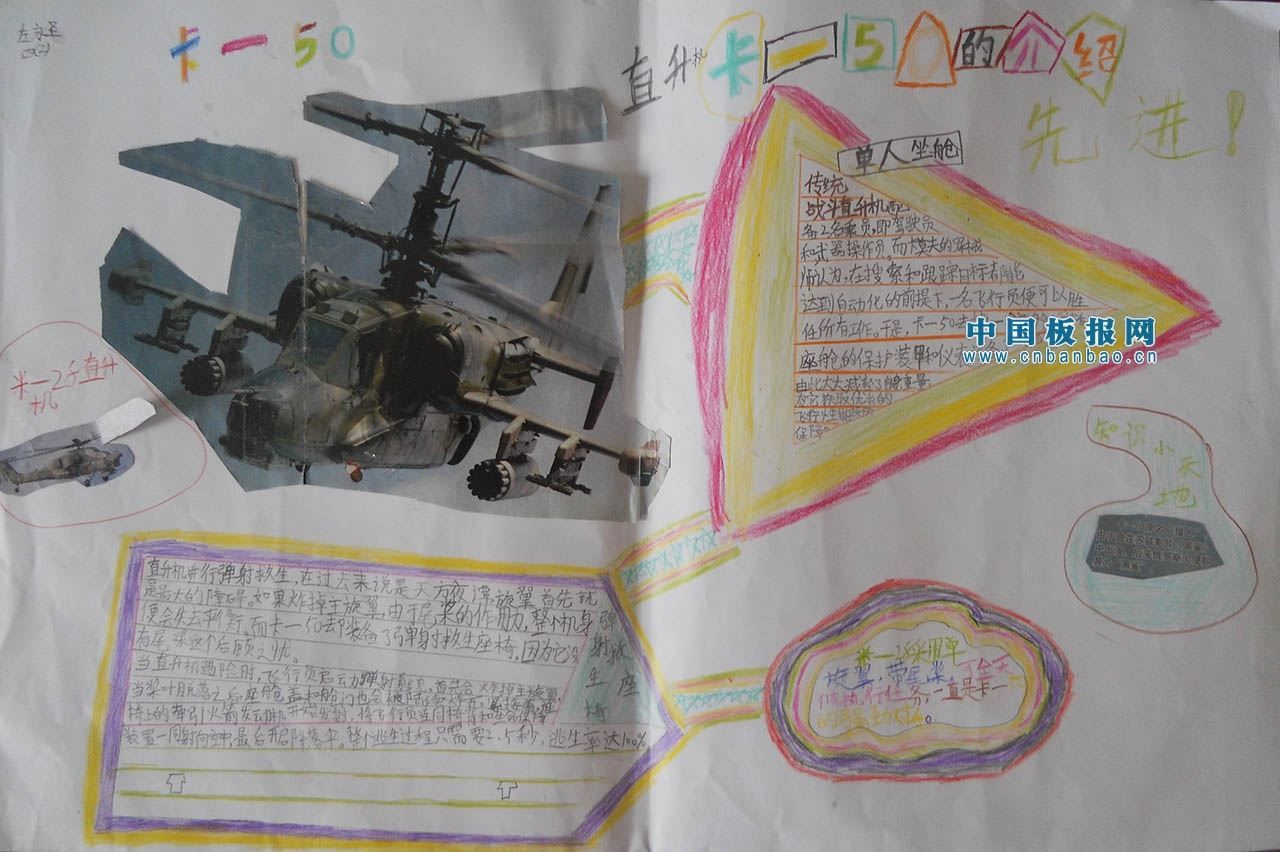 卡一50
直升机卡一50的介绍
先进！
单人坐舱
传统
战斗直升机配
备2名乘员，即驾驶员
和武器操作员。而
师认为，在搜索和跟踪目标
达到自动化的前提下，一名飞行员便可以胜
任所有工作。于是，卡一50
座舱的保护装甲和仪
由此大大减轻了
飞行性能
保障。
中国板报网
www.cnbanbao.cn
米一28直升
机
知识
小天
地
直升机进行弹射救生，在过去来说是天方夜谭，旋翼首先就
是最大的障碍。如果炸掉主旋翼，由于尾桨的作用，整个机身
便会失去平衡。而卡一50却装备了弹射救生座椅，因为它没
有尾桨这个后顾之忧。
当直升机遇险时，飞行员启动弹射程序，首先会炸掉主旋翼，
当桨叶脱落之后，座舱盖和舱门也会被
椅上的牵引火箭发动机开始点燃，将飞行员连同椅背和
装置一同射向空中，最后开启降落伞。整个逃生过程只需要2.5秒，逃生率达100%
弹
射救
生座
椅
米一28采用单
旋翼，带尾桨，
执行任务，一直是卡一
的强劲对手。